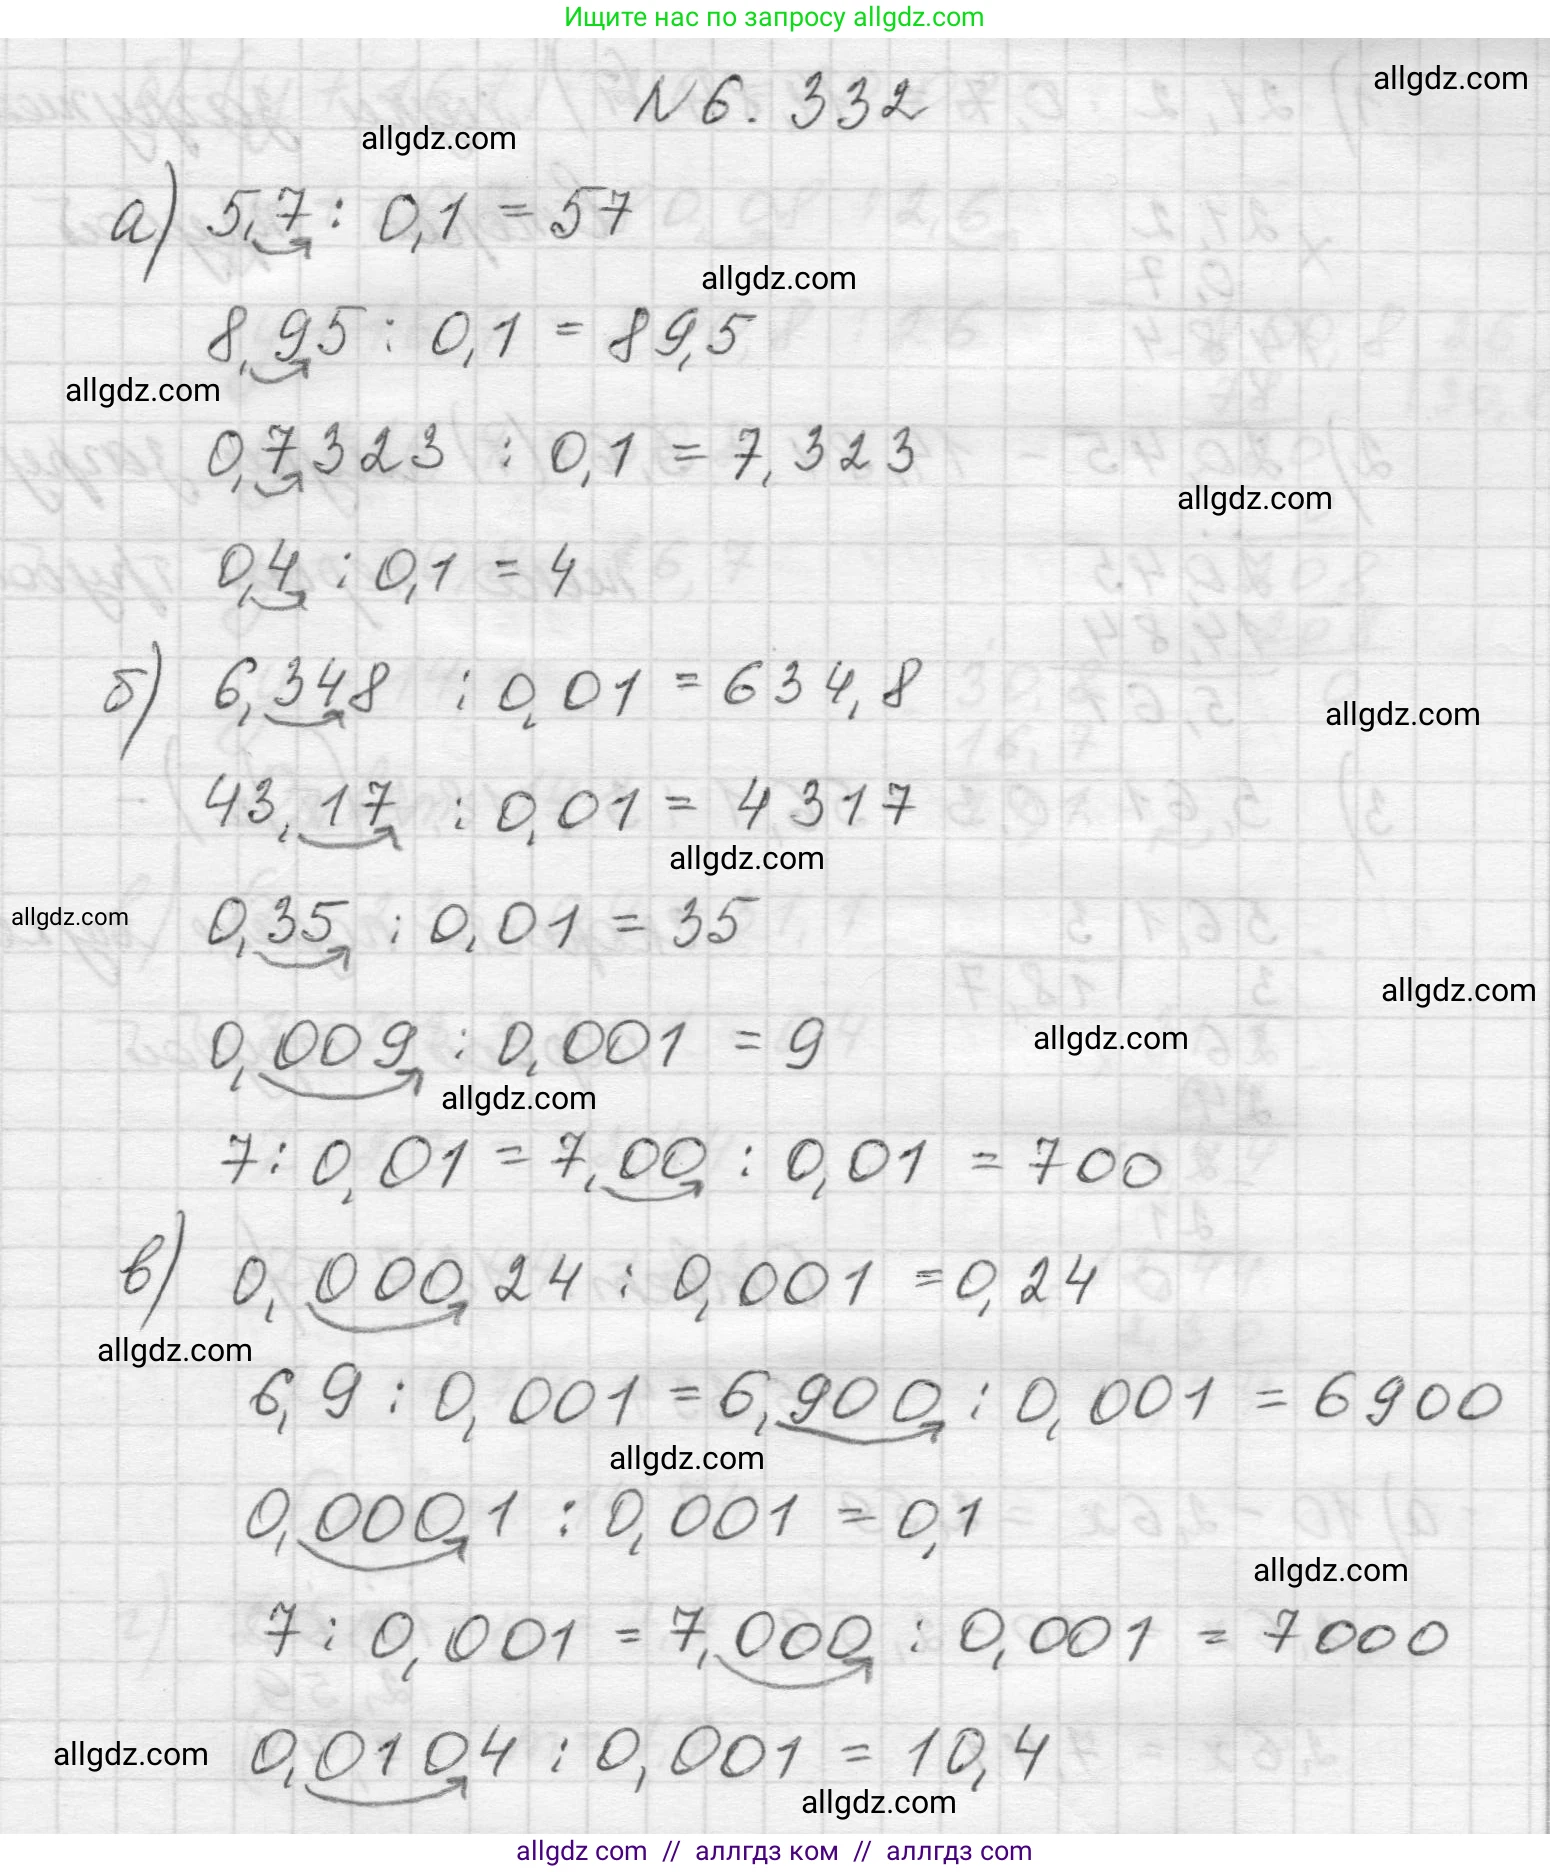 Ищите нас по запросу allgdz.com
allgdz.com
№ 6. 332
allgdz.com
а) 5,7 : 0,1 = 57
allgdz.com
8,95 : 0,1 = 89,5
allgdz.com
0,7323 : 0,1 = 7,323
allgdz.com
0,4 : 0,1 = 4
б) 6,348 : 0,01 = 634,8
allgdz.com
43,17 : 0,01 = 4317
allgdz.com
allgdz.com
0,35 : 0,01 = 35
allgdz.com
0,009 : 0,001 = 9
allgdz.com
allgdz.com
7 : 0,01 = 7,00 : 0,01 = 700
в) 0,00024 : 0,001 = 0,24
allgdz.com
6,9 : 0,001 = 6,900 : 0,001 = 6900
allgdz.com
0,0001 : 0,001 = 0,1
allgdz.com
7 : 0,001 = 7,000 : 0,001 = 7000
allgdz.com
0,0104 : 0,001 = 10,4
allgdz.com
allgdz com // аллгдз ком // аллгдз com